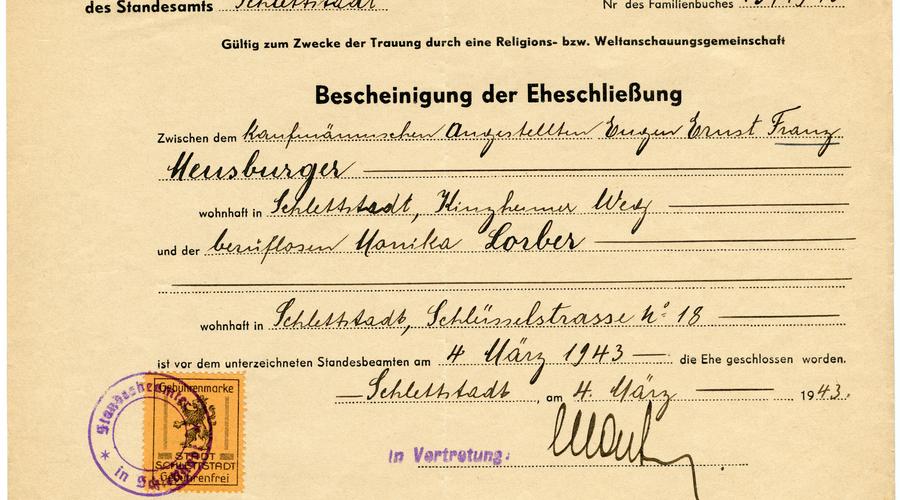 des Standesamts Schlettstadt Nr des Familienbuches
Gültig zum Zwecke der Trauung durch eine Religions- bzw. Weltanschauungsgemeinschaft
Bescheinigung der Eheschließung
Zwischen dem kaufmännischen Angestellten Eugen Ernst Franz
Meusburger
wohnhaft in Schlettstadt, Kinzheimer Weg
und der berufslosen Monika Lorber
wohnhaft in Schlettstadt, Schlüsselstrasse No 18
ist vor dem unterzeichneten Standesbeamten am 4 März 1943 die Ehe geschlossen worden.
Schlettstadt, am 4. März 1943.
In Vertretung:
Standesbeamter
in
Gebührenmarke
STADT
SCHLETTSTADT
Gebührenfrei